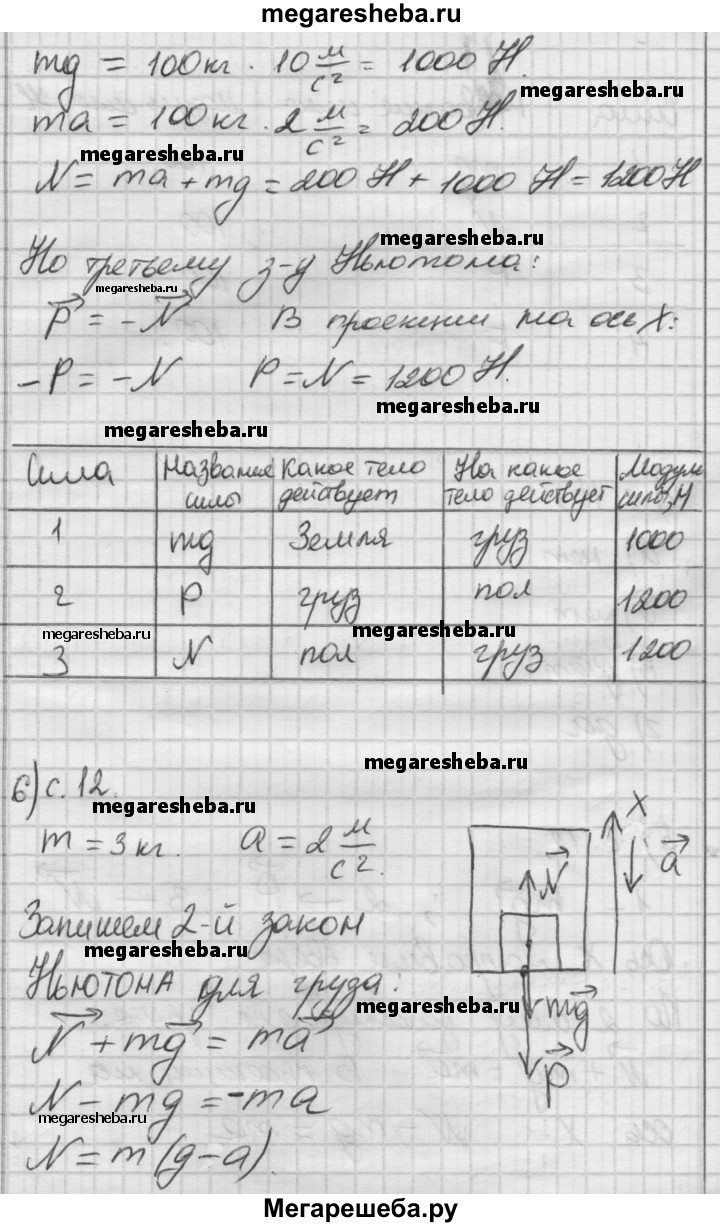 megaresheba.ru
mg = 100кг · 10 м/с² = 1000 Н.
megaresheba.ru
ma = 100кг · 2 м/с² = 200 Н.
megaresheba.ru
N = ma + mg = 200 Н + 1000 Н = 1200 Н
megaresheba.ru
По третьему з-у Ньютона:
megaresheba.ru
P⃗ = -N⃗ В проекции на ось X:
-P = -N P = N = 1200 Н.
megaresheba.ru
megaresheba.ru
Сила Название силы Какое тело действует На какое тело действует Модуль силы, Н
1 mg Земля груз 1000
2 P груз пол 1200
megaresheba.ru megaresheba.ru
3 N пол груз 1200
megaresheba.ru
б) с. 12.
megaresheba.ru
m = 3 кг. a = 2 м/с².
X
a⃗
N⃗
mg⃗
P⃗
Запишем 2-й закон
megaresheba.ru
Ньютона для груза:
megaresheba.ru
N⃗ + mg⃗ = ma⃗
N - mg = -ma
megaresheba.ru
N = m(g-a).
Мегарешеба.ру